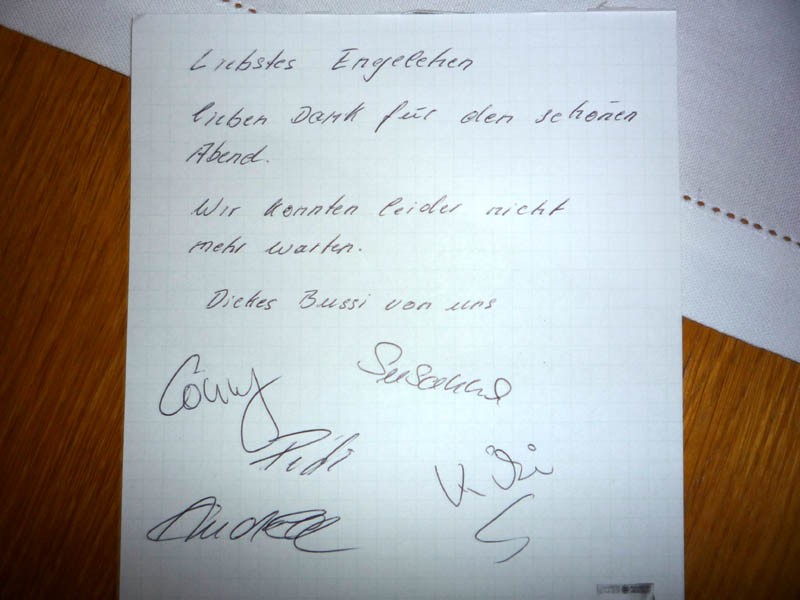 Liebstes Engelchen
lieben Dank für den schönen
Abend.
Wir konnten leider nicht
mehr warten.
Dickes Bussi von uns
Conny
Susanne
Andrea